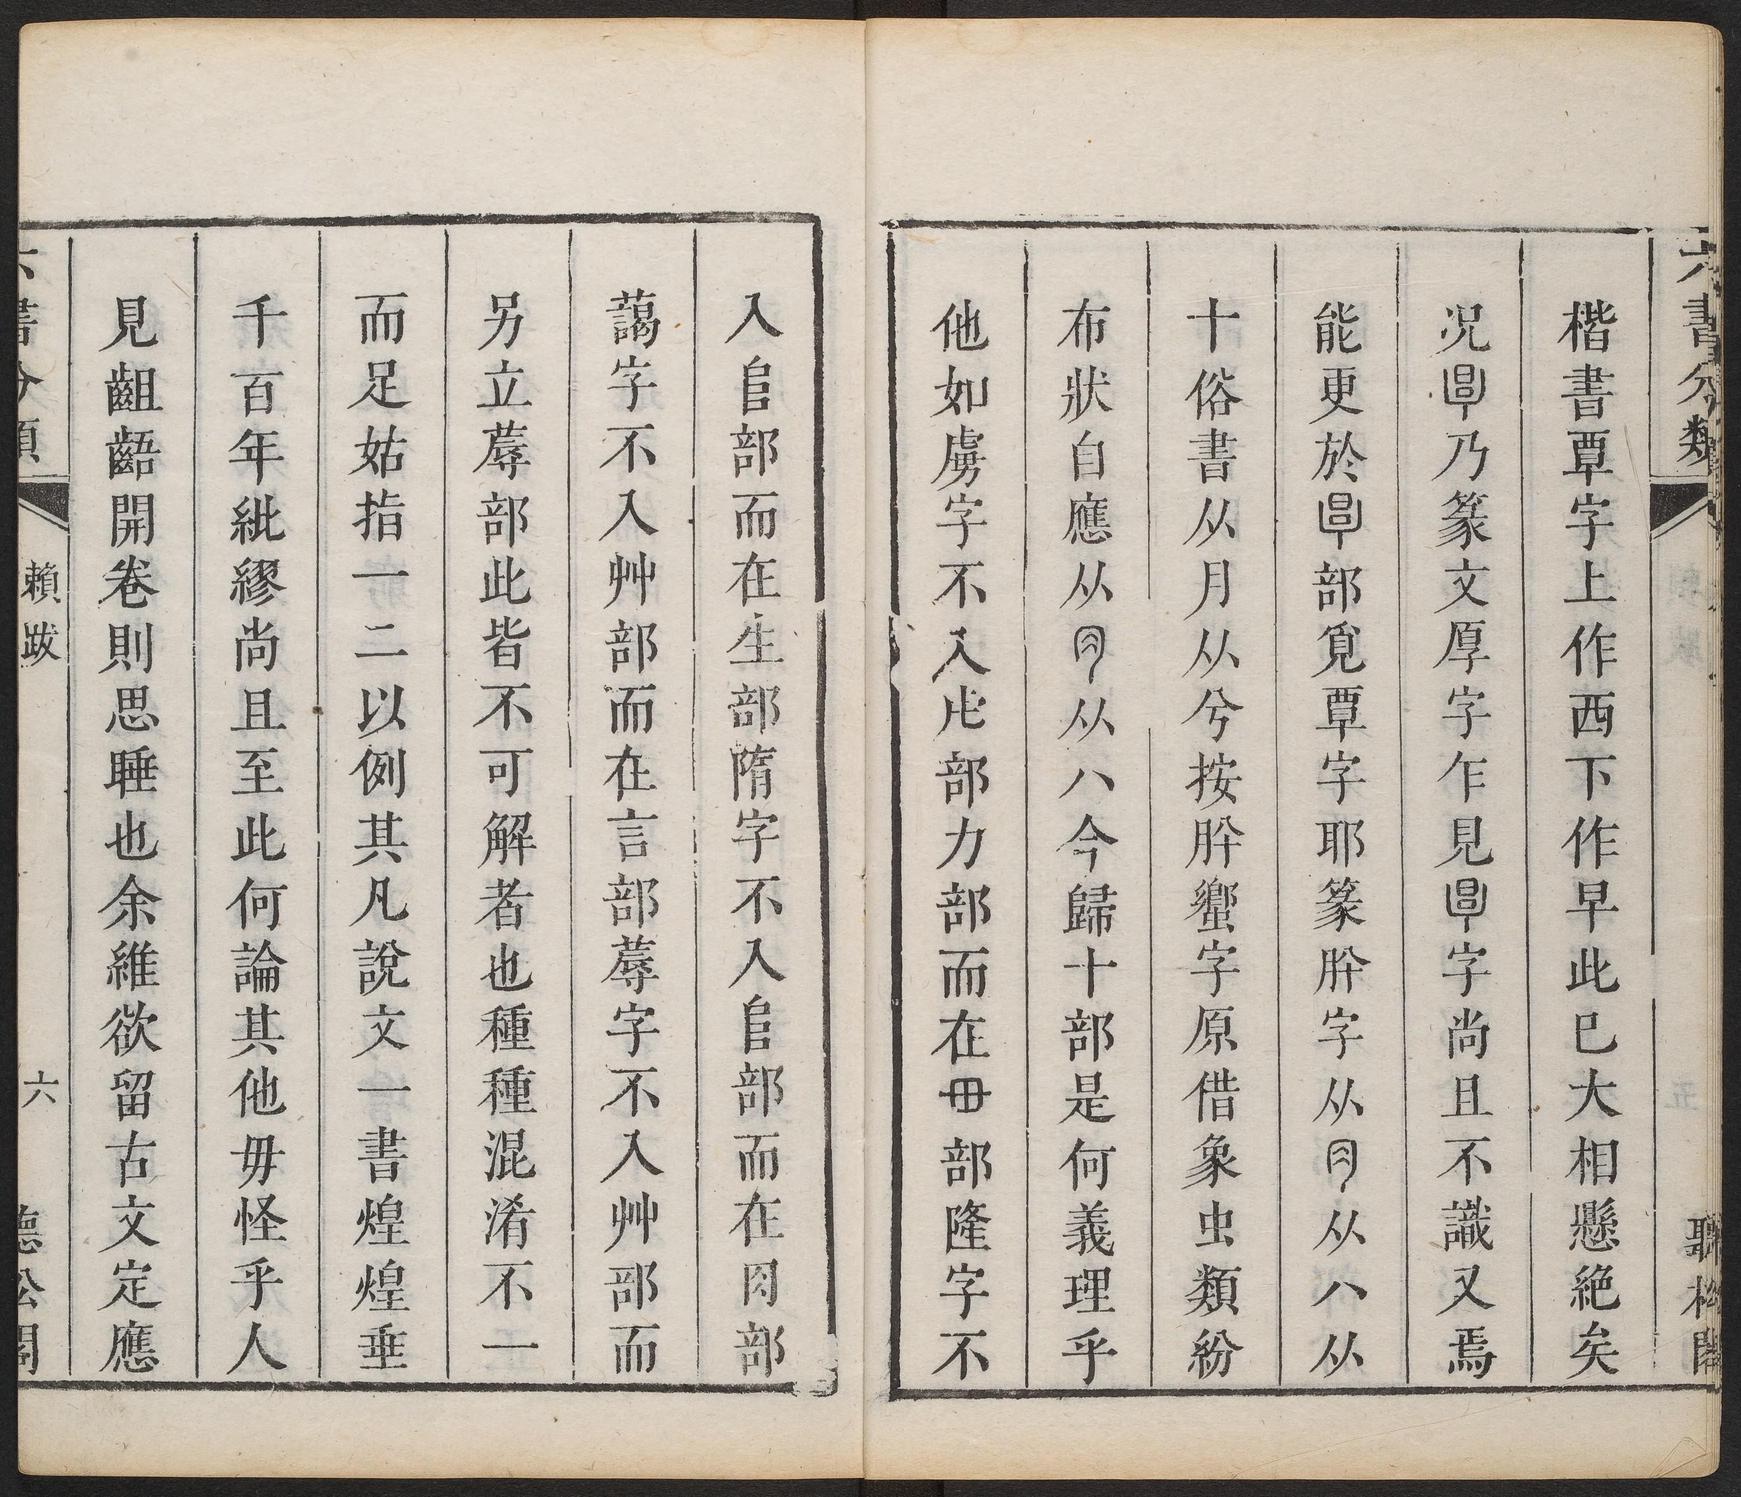 六書分類
聽松閣
楷書覃字上作西下作早此巳大相懸絶矣
况㫗乃篆文厚字乍見㫗字尚且不識又焉
能更於㫗部覓覃字耶篆肸字从从八从
十俗書从月从兮按肸蠁字原借象虫類紛
布狀自應从从八今歸十部是何義理乎
他如虜字不入虍部力部而在毌部隆字不
入𨸏部而在生部隋字不入𨸏部而在肉部
藹字不入艸部而在言部蓐字不入艸部而
另立蓐部此皆不可解者也種種混淆不一
而足姑指一二以例其凡說文一書煌煌垂
千百年紕繆尚且至此何論其他毋怪乎人
見齟齬開卷則思睡也余維欲留古文定應
六書分類
賴跋
六